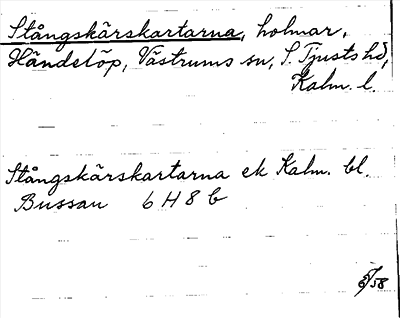 Stångskärskartarna, holmar,
Händelöp, Västrums sn, S. Tjusts hd,
Kalm. l.
Stångskärskartarna ek Kalm. bl.
Bussan 6 H 8 b
58